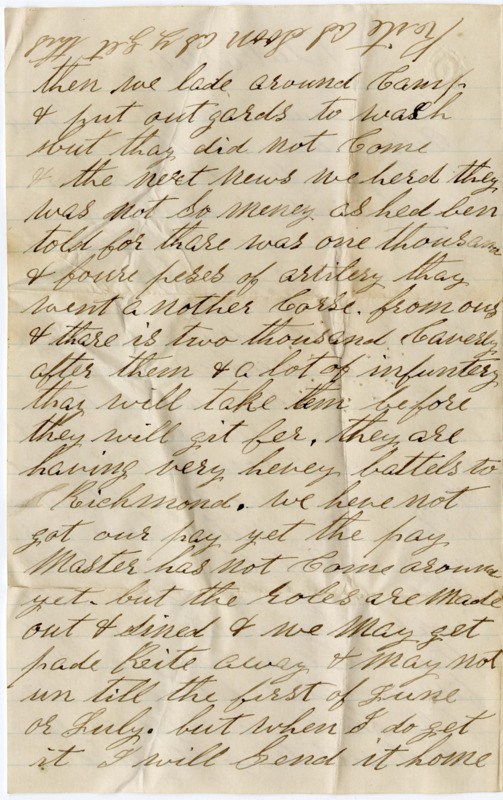 Rite as soon as you get this
then we lade around Camp
& put out gards to wach
but thay did not Come
& the next news we herd they
was not so meney as hed ben
told for thare was one thousan
& foure peses of artilery thay
went a nother Corse. from ous
& thare is two thousand Caverly
after them & a lot of infuntery
thay will take tem before
they will git fer. they are
having very hevey battels to
Richmond. we heve not
got our pay yet the pay
Master has not Came around
yet. but the roles are made
out & sined & we may get
pade Reite away & may not
un till the first of June
or July. but when I do get
it I will Send it home